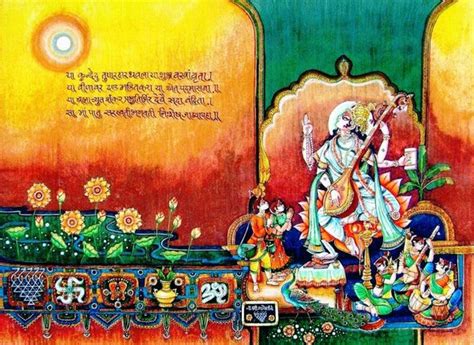 या कुन्देन्दु तुषारहार धवला या शुभ्र वस्त्रावृता ।
या वीणावर दण्ड मण्डितकरा या श्वेत पद्मासना ॥
या ब्रह्माच्युत शंकर प्रभृतिभिर् देवैः सदा वन्दिता ।
सा मां पातु सरस्वती भगवती निःशेष जाड्यापहा ॥